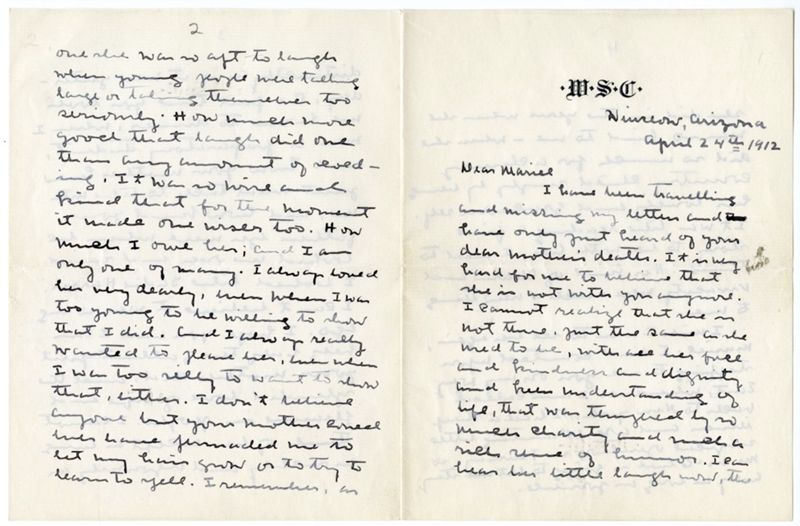 ·W·S·C·
Winslow, Arizona
April 24th 1912
Dear Mariel
I have been travelling
and missing my letters and
have only just heard of your
dear mother's death. It is very
hard for me to believe that
she is not with you anymore.
I cannot realize that she is
not there. just the same as she
used to be, with all her
and kindness and dignity
and keen understanding of
life, that was tempered by so
much charity and such a
rich sense of humor. I can
hear her little laugh now, the
2
one she was so apt to laugh
when young people were talking
large or taking themselves too
seriously. How much more
good that laugh did one
than any amount of scold-
ing; It was so wise and
kind that for the moment
it made one wiser too. How
much I owe her; and I am
only one of many. I always loved
her very dearly, even when I was
too young to be willing to show
that I did. And I always really
wanted to please her, even when
I was too silly to want to show
that, either. I don't believe
anyone but your mother could
ever have persuaded me to
let my hair grow or to try to
learn to spell. I remember, as